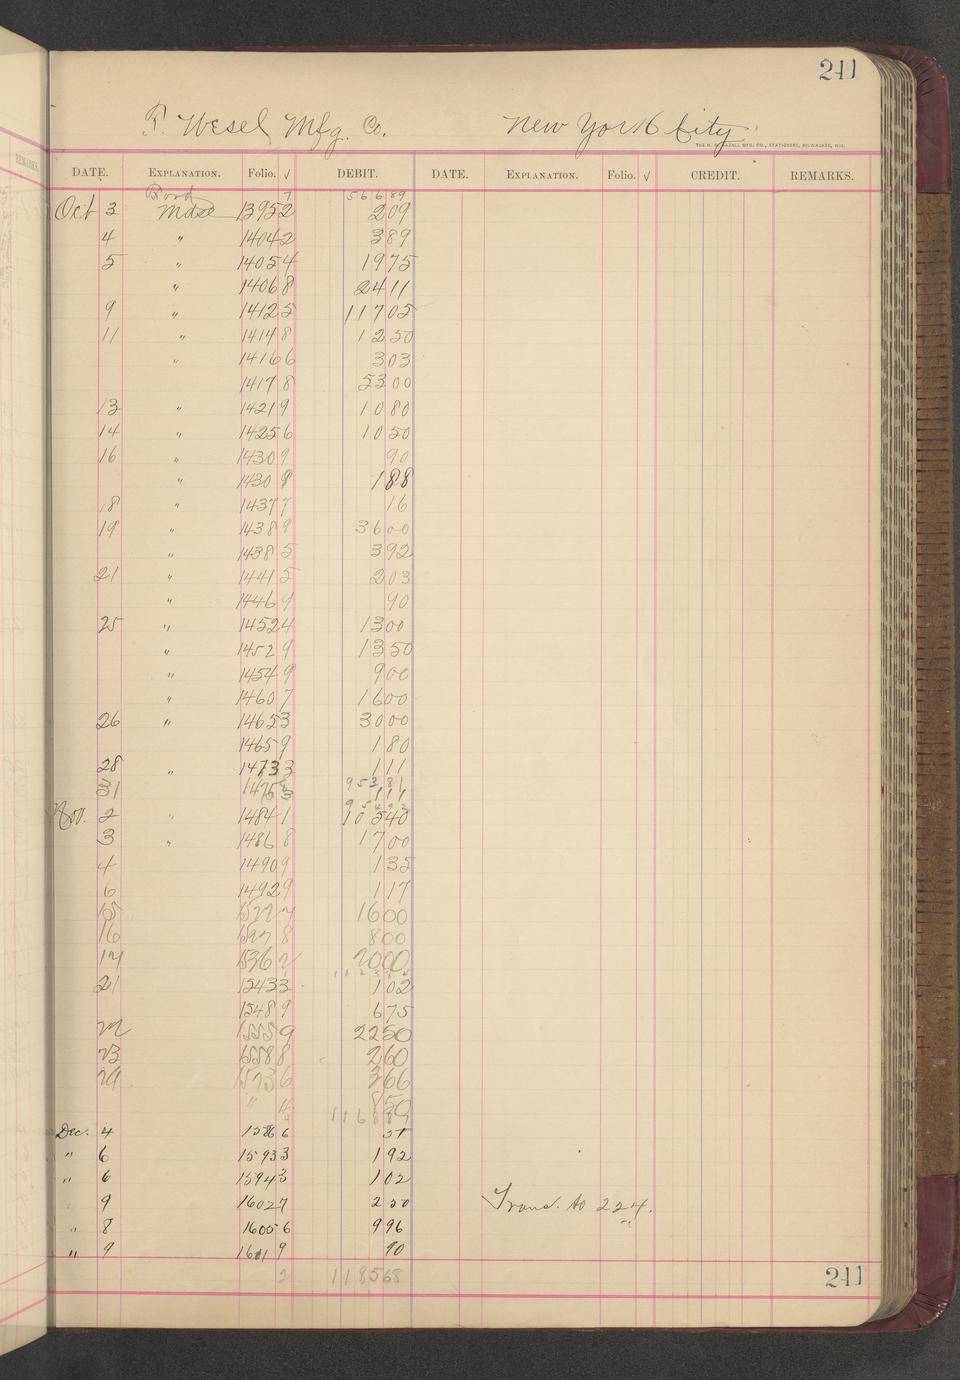 241
F. Wesel Mfg. Co. New York City
DATE. EXPLANATION. Folio. √ DEBIT. DATE. EXPLANATION. Folio. √ CREDIT. REMARKS.
7 566 89
Oct 3 Mdse 1395 2 2 09
4 " 1404 2 3 89
5 " 1405 4 19 75
" 1406 8 24 11
9 " 1412 5 117 05
11 " 1414 8 12 50
" 1416 6 3 03
1417 8 53 00
13 " 1421 9 10 80
14 " 1425 6 10 50
16 " 1430 9 90
" 1430 9 1 88
18 " 1437 7 16
19 " 1438 9 36 00
" 1438 5 3 92
21 " 1441 5 2 03
" 1446 9 90
25 " 1452 4 13 00
" 1452 9 13 50
" 1454 9 9 00
" 1460 7 16 00
26 " 1465 3 30 00
1465 9 1 80
28 " 1473 3 1 11
953 81
31 1 11
Nov. 2 " 1484 1 105 40
3 " 1486 8 17 00
4 1490 9 1 35
6 1492 9 1 17
15 16 00
16 8 00
17 1536 2 20 00
21 1543 3 1 02
1548 9 6 75
22 1555 9 22 50
23 1558 8 2 60
29 1573 6 3 66
" 8 50
1168 89
Dec. 4 1586 6 51
" 6 1593 3 1 92
" 6 1594 3 1 02
9 1602 7 2 50 Transf. to 224.
" 8 1605 6 9 96
" 9 1611 9 90
2 1185 68
241